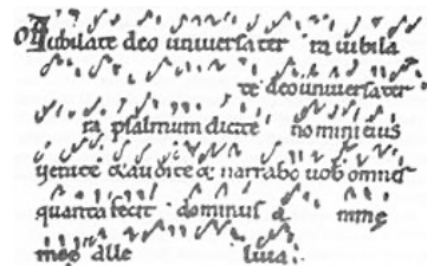 Of Iubilate deo universa ter ra iubila
te deo universa ter
ra psalmum dicite nomini eius
venite & audite & narrabo vob omnes
quanta fecit dominus a nimę
meę alle luia